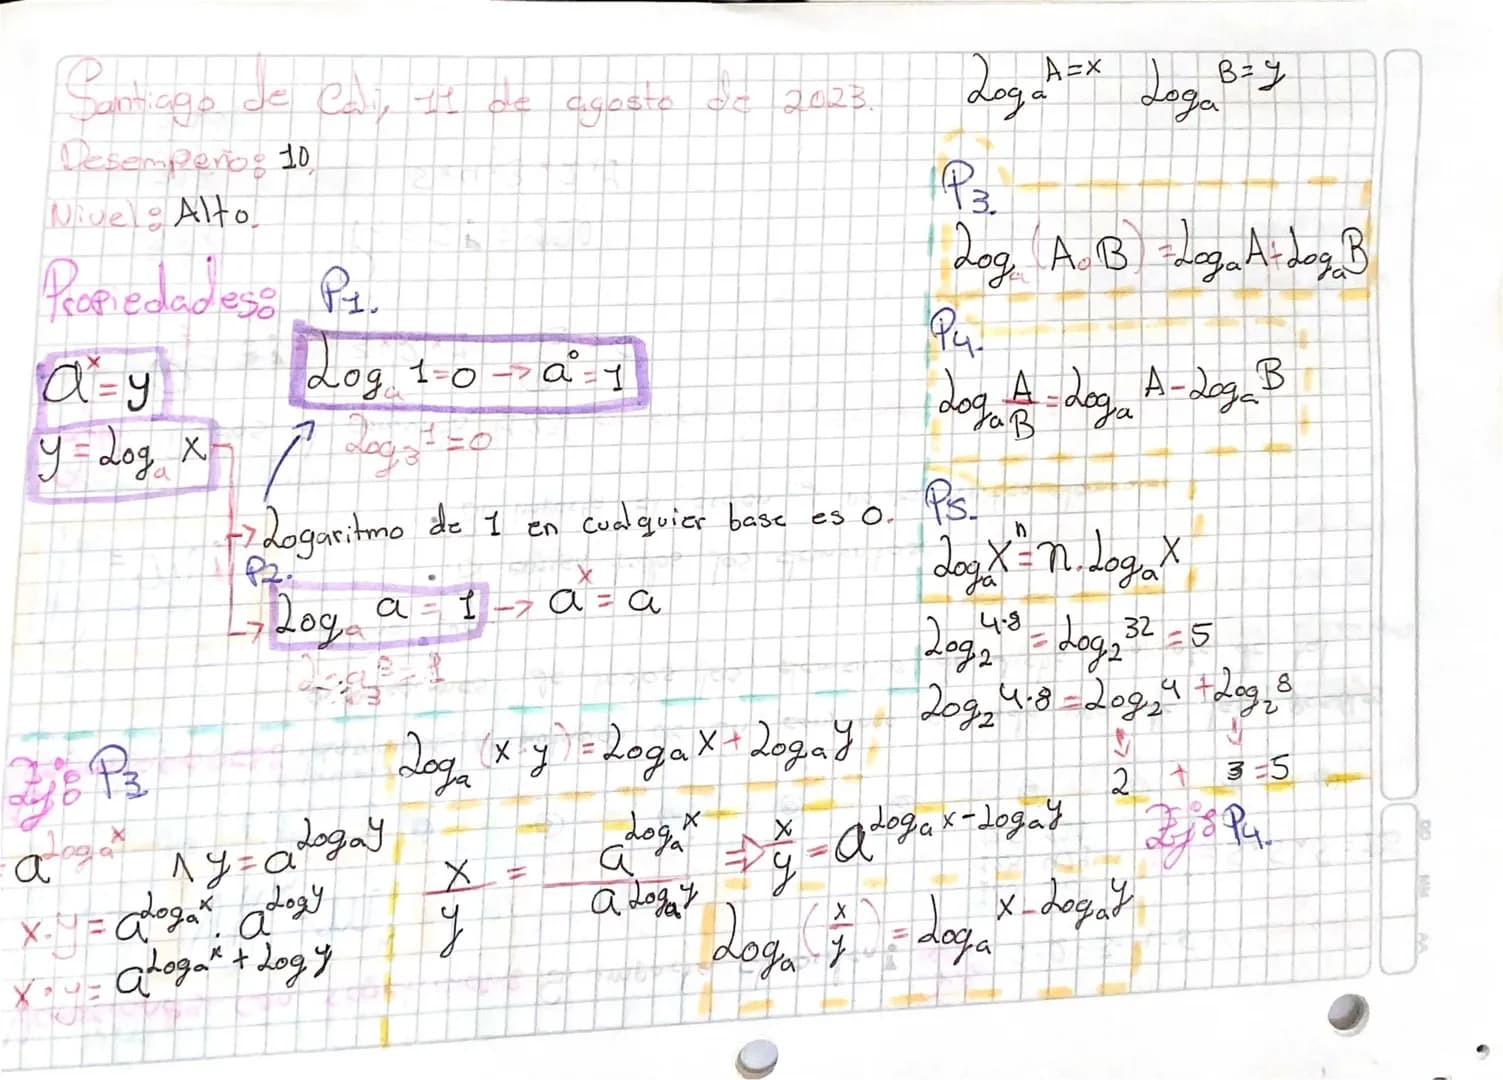 Santiago de Cali, 11 de agosto de 2023.
Desempeño: 10,
Nivel: Alto.
Propiedades: P1.
a^x = y
Log_a 1=0 -> a^0 = 1
y = Log_a x
Log_3 1 = 0
-> Logaritmo de 1 en cualquier base es 0.
P2.
-> Log_a a = 1 -> a^x = a
Log_a A = x Log_a B = y
P3.
Log_a (A.B) = Log_a A + Log_a B
P4.
Log_a A/B = Log_a A - Log_a B
P5.
Log_a x^n = n. Log_a x
Log_2 4.8 = Log_2 32 = 5
Log_2 4.8 = Log_2 4 + Log_2 8
2 + 3 = 5
Ej: P3
Log_a (x.y) = Log_a x + Log_a y
a^Log_a x ∧ y = a^Log_a y
x.y = a^Log_a x . a^Log y
x.y = a^Log_a x + Log y
x/y = a^Log_a x / a^Log_a y => x/y = a^Log_a x - Log_a y
Ej: P4.
Log_a (x/y) = Log_a x - Log_a y